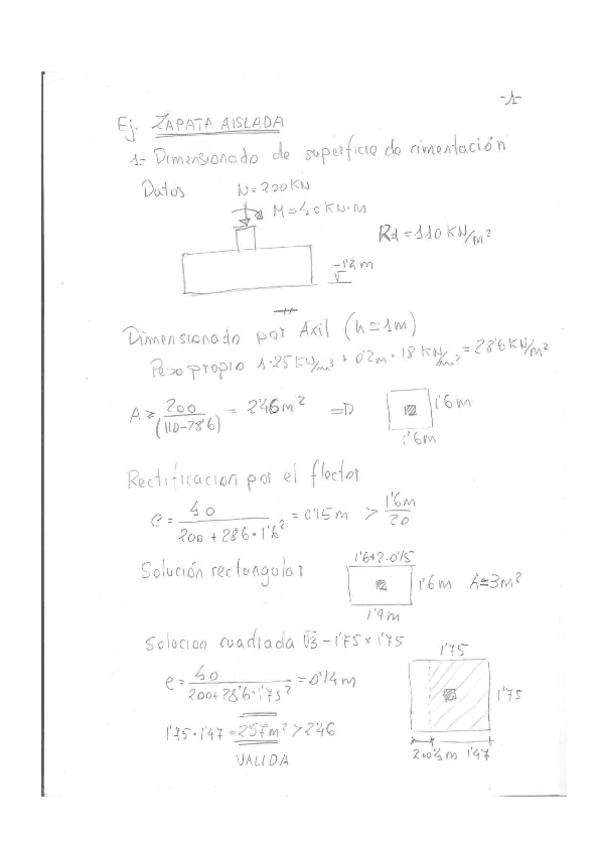 -1-
Ej. ZAPATA AISLADA
1.- Dimensionado de superficie de cimentación
Datos N=200KN
M=40KN·m
Rd=110KN/m²
-1'2m
Dimensionado por Axil (h≃1m)
Peso propio 1·25KN/m³ + 0'2m·18KN/m³=28'6KN/m²
A ≥ 200/(110-28'6) = 2'46m² => 1'6m
1'6m
Rectificacion por el flector
e = 40/(200+28'6·1'6²) = 0'15m > 1'6m/20
Solución rectangular 1'6+2·0'15
1'6m A=3m²
1'9m
Solucion cuadrada √3 - 1'75 x 1'75
1'75
e = 40/(200+28'6·1'75²) = 0'14m
1'75
1'75·1'47 = 2'57m² > 2'46
2·0'14m 1'47
VALIDA